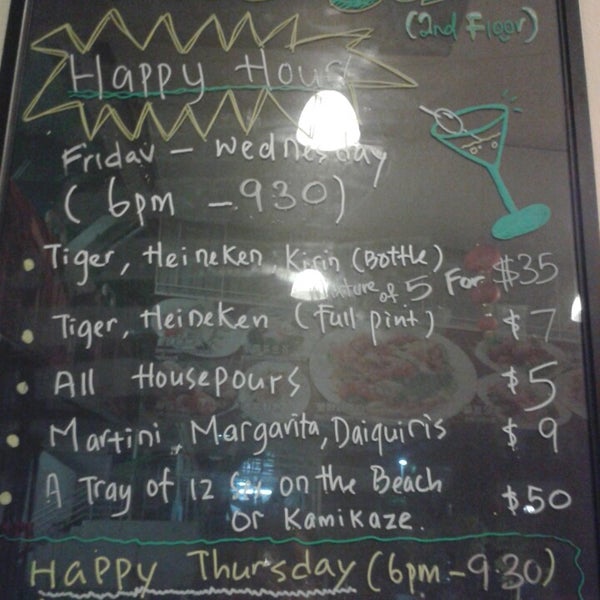 (2nd Floor)
Happy Hour
Friday - Wednesday
(6pm - 930)
Tiger, Heineken, Kirin (Bottle)
mixture of 5 For $35
Tiger, Heineken (Full pint) $7
All Housepours $5
Martini, Margarita, Daiquiris $9
A Tray of 12 on the Beach
or Kamikaze. $50
Happy Thursday (6pm - 930)